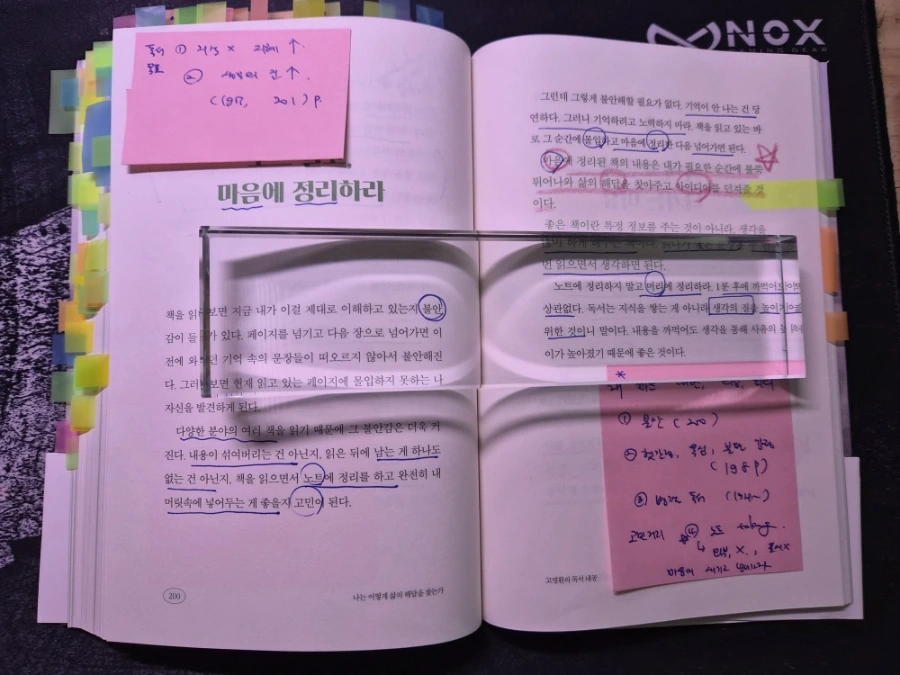 NOX
GAMING GEAR
독서 ① 지식 ×
② 생각의 질 ↑.
(197, 201) p.
마음에 정리하라
책을 읽 보면 지금 내가 이걸 제대로 이해하고 있는지 불안
감이 들 가 있다. 페이지를 넘기고 다음 장으로 넘어가면 이
전에 와 던 기억 속의 문장들이 떠오르지 않아서 불안해진
다. 그러 보면 현재 읽고 있는 페이지에 몰입하지 못하는 나
자신을 발견하게 된다.
다양한 분야의 여러 책을 읽기 때문에 그 불안감은 더욱 커
진다. 내용이 섞여버리는 건 아닌지, 읽은 뒤에 남는 게 하나도
없는 건 아닌지, 책을 읽으면서 노트에 정리를 하고 완전히 내
머릿속에 넣어두는 게 좋을지 고민이 된다.
200
나는 어떻게 삶의 해답을 찾는가
그런데 그렇게 불안해할 필요가 없다. 기억이 안 나는 건 당
연하다. 그러니 기억하려고 노력하지 마라. 책을 읽고 있는 바
로 그 순간에 몰입하고 마음에 정리한 다음 넘어가면 된다.
마음에 정리된 책의 내용은 내가 필요한 순간에 불쑥
튀어나와 삶의 해답을 찾아주고 아이디어를 던져줄 것
이다.
좋은 책이란 특정 정보를 주는 것이 아니라, 생각을
하게 해주는 책이다.
면 읽으면서 생각하면 된다.
노트에 정리하지 말고 머리에 정리하라. 1분 후에 까먹어도
상관없다. 독서는 지식을 쌓는 게 아니라 생각의 질을 높이기
위한 것이니 말이다. 내용을 까먹어도 생각을 통해 사유의
이가 높아졌기 때문에 좋은 것이다.
*
① 불안 (200)
(198 p)
③ 병렬 독서
고민거리 노트
마음에 새기고 넘어가라
고명환의 독서 내공